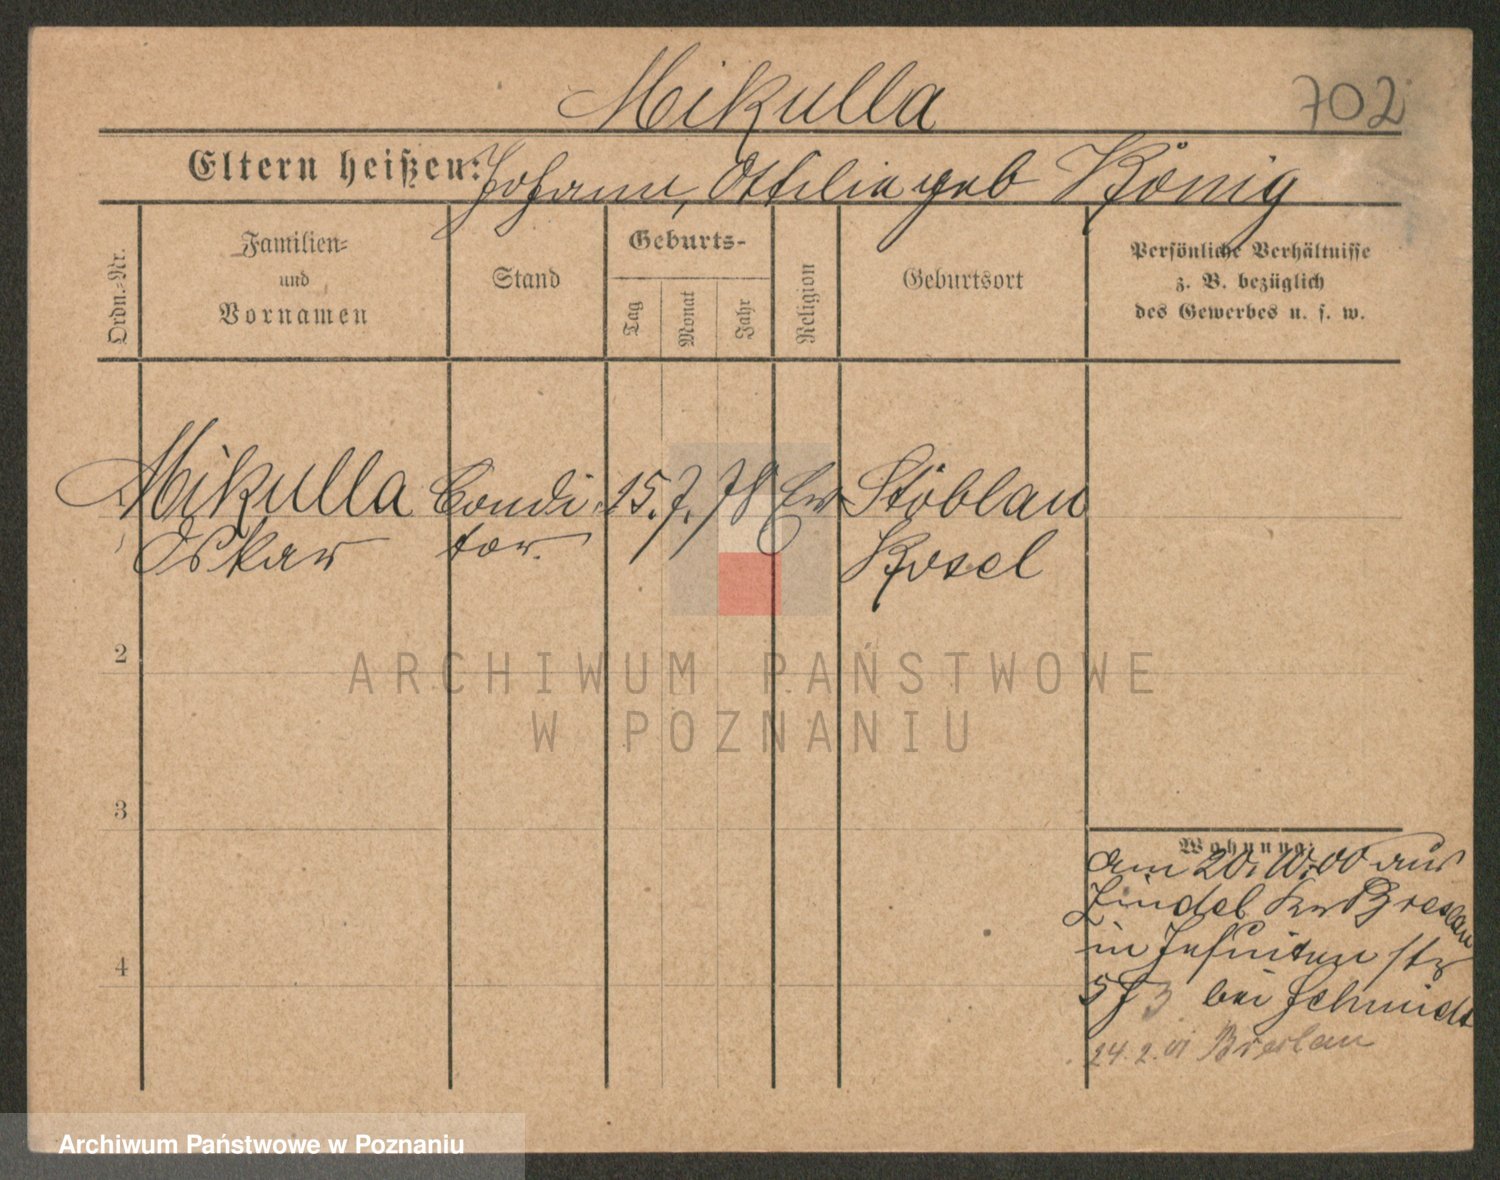 Mikulla
702
Eltern heißen: Johann, Ottilie geb König
Ordn.-Nr.
Familien-
und
Vornamen
Stand
Geburts-
Tag
Monat
Jahr
Religion
Geburtsort
Persönliche Verhältnisse
z. B. bezüglich
des Gewerbes u. s. w.
Mikulla Condi 15. 7. 78 Ev Stöblau
Oskar tor. Kosel
2
3
4
Wohnung:
am 20.10.00 aus
Zindel Kr Breslau
in Jesuiten str
5 bei Schmidt
24.2.01 Breslau
ARCHIWUM PAŃSTWOWE
W POZNANIU
Archiwum Państwowe w Poznaniu